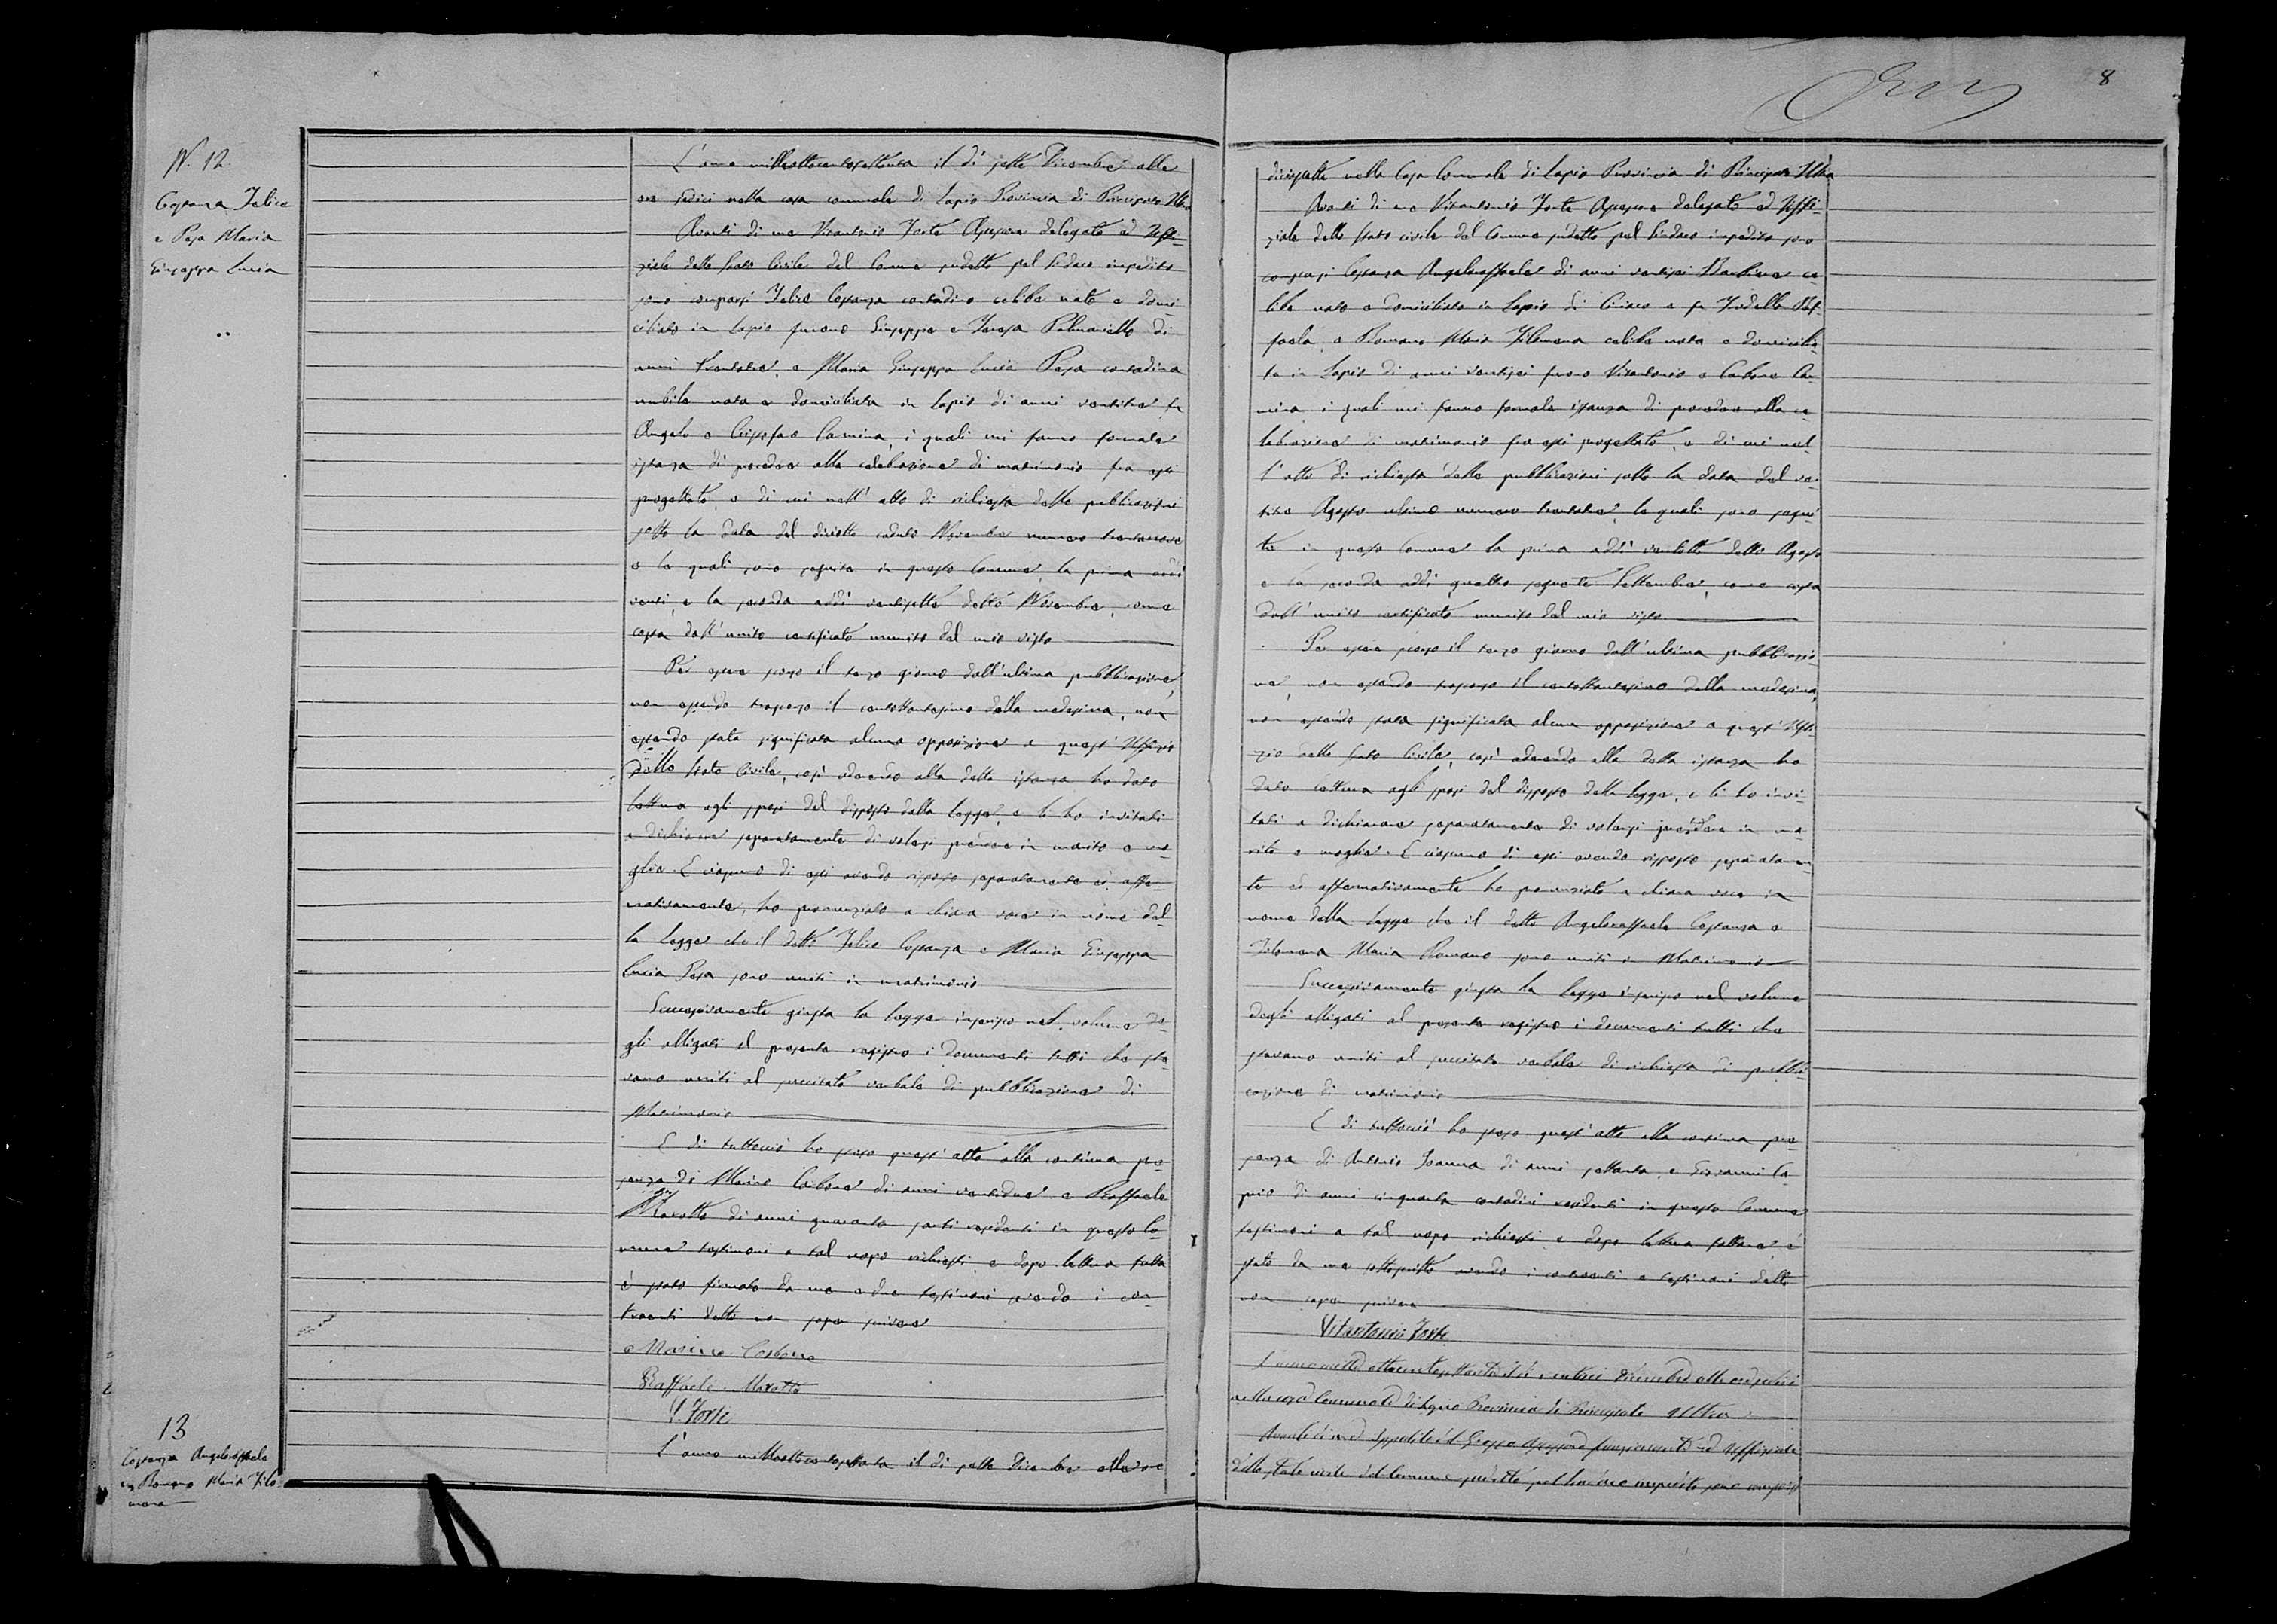 N. 12.
Costanza Felice
e Pepa Maria
Giuseppa Lucia
L'anno milleottocentosettanta il dì sette Dicembre alle
ore sedici nella casa comunale di Lapio Provincia di Principato Ultra
Avanti di me Vitantonio Forte Assessore delegato ad Uffi-
ziale dello Stato Civile del Comune sudetto pel Sindaco impedito
sono comparsi Felice Costanza contadino celibe nato e domi
ciliato in Lapio furono Giuseppe e Teresa Palmariello di
anni trentatre, e Maria Giuseppa Lucia Pepa contadina
nubile nata e domiciliata in Lapio di anni ventitre fu
Angelo e Carmina, i quali mi fanno formale
istanza di procedere alla celebrazione di matrimonio fra essi
progettato, e di cui nell'atto di richiesta delle pubblicazioni
sotto la data del diciotto caduto Novembre numero trentanove
e le quali sono seguite in questo Comune, la prima addì
venti, e la seconda addì ventisette detto Novembre, come
costa dall'unito certificato munito del mio visto
Per essere scorso il terzo giorno dall'ultima pubblicazione,
non essendo trascorso il centottantesimo dalla medesima, non
essendo stata significata alcuna opposizione a quest'Uffizio
dello Stato Civile, così aderendo alla detta istanza ho dato
lettura agli sposi del disposto dalla legge, e li ho invitati
a dichiarare separatamente di volersi prendere in marito e mo
glie. E ciascuno di essi avendo risposto separatamente ed affer-
mativamente, ho pronunziato a chiara voce in nome del
la Legge che il detto Felice Costanza e Maria Giuseppa
Lucia Pepa sono uniti in matrimonio
Successivamente giusta la legge inserisco nel volume de-
gli alligati al presente registro i documenti tutti che sta-
vano uniti al succitato verbale di pubblicazione di
Matrimonio
E di tuttociò ho steso quest'atto alla continua pre-
senza di Marino Carbone di anni ventidue e Raffaele
Marotta di anni quaranta sarti residenti in questo Co-
mune testimoni a tal uopo richiesti e dopo lettura fatta
è stato firmato da me e due testimoni avendo i con-
traenti detto non saper scrivere
Marino Carbone
Raffaele Marotta
V. Forte
13
Costanza Angeloraffaele
e Romano Maria Filo
mena
L'anno milleottocentosettanta il dì sette Dicembre alle ore
8
diciassette nella Casa Comunale di Lapio Provincia di Principato Ultra
Avanti di me Vitantonio Forte Assessore delegato ad Uffi-
ziale dello Stato civile del Comune sudetto pel Sindaco impedito sono
comparsi Costanza Angeloraffaele di anni ventisei ce-
libe nato e domiciliato in Lapio di Ciriaco e fu Raf-
faela, e Romano Maria Filomena celibe nata e domicilia-
ta in Lapio di anni ventisei furono Vitantonio e Carbone Car
mina, i quali mi fanno formale istanza di procedere alla ce-
lebrazione di matrimonio fra essi progettato, e di cui nel-
l'atto di richiesta delle pubblicazioni sotto la data del ven
titre Agosto ultimo numero trentatre, le quali sono segui-
te in questo Comune la prima addì ventotto detto Agosto
e la seconda addì quattro seguente Settembre, come costa
dall'unito certificato munito del mio visto
Per essere scorso il terzo giorno dall'ultima pubblicazio-
ne, non essendo trascorso il centottantesimo dalla medesima,
non essendo stata significata alcuna opposizione a quest'Uffi-
zio dello Stato Civile, così aderendo alla detta istanza ho
dato lettura agli sposi del disposto della legge, e li ho invi-
tati a dichiarare separatamente di volersi prendere in ma
rito e moglie. E ciascuno di essi avendo risposto separatamen
te ed affermativamente ho pronunziato a chiara voce in
nome della Legge che il detto Angeloraffaele Costanza e
Filomena Maria Romano sono uniti in Matrimonio
Successivamente giusta la legge inserisco nel volume
degli alligati al presente registro i documenti tutti che
stavano uniti al succitato verbale di richiesta di pubbli-
cazione di matrimonio
E di tuttociò ho steso quest'atto alla continua pre-
senza di Antonio Ioanna di anni settanta, e Giovanni Ca-
di anni cinquanta contadini residenti in questo Comune
testimoni a tal uopo richiesti e dopo lettura fattane è
stato da me sottoscritto avendo i contraenti e testimoni detto
non saper scrivere
Vitantonio Forte
L'anno mille ottocentosettanta il dì Dicembre alle ore sedici
nella casa Comunale di Lapio Provincia di Principato Ultra
Avanti di me Ippolito del Grosso Assessore funzionante ad Uffiziale
dello stato civile del Comune sudetto, pel Sindaco impedito sono comparsi